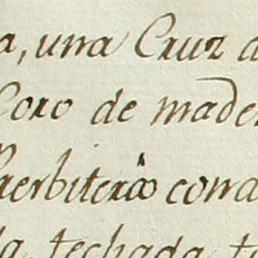 a, una Cruz d
Coro de made
Presbiterio corra
la fechada, te